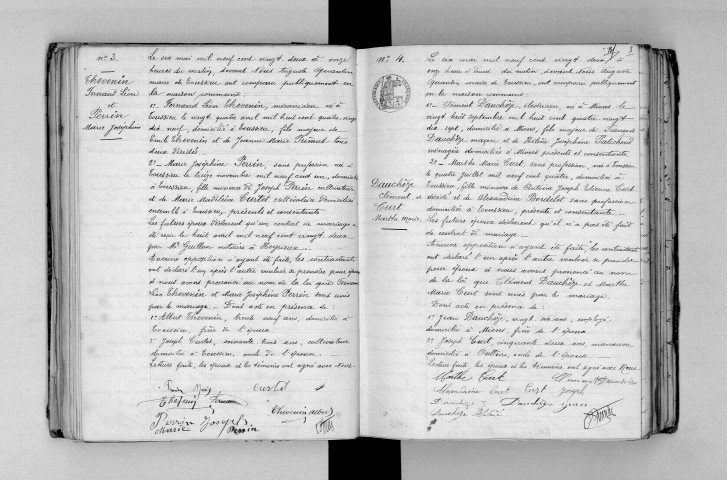 N° 3.
Thevenin
Fernand Léon
et
Perrin
Marie Joséphine
Le six mai mil neuf cent vingt deux à onze
heures du matin, devant Nous Auguste Quantin
maire de Toussieu ont comparu publiquement en
la maison commune:
1° Fernand Léon Thevenin, mécanicien né à
Toussieu le vingt quatre avril mil huit cent quatre vingt
dix neuf, domicilié à Toussieu, fils majeur de
Emile Thevenin et de Jeanne Marie Primat tous
deux décédés
2° Marie Joséphine Perrin sans profession née à
Toussieu le treize novembre mil neuf cent un, domiciliée
à Toussieu, fille mineure de Joseph Perrin cultivateur
et de Marie Madeleine Curtet cultivatrice domiciliés
ensemble à Toussieu, présents et consentants.
Les futurs époux déclarent qu'un contrat de mariage a
été reçu le huit avril mil neuf cent vingt deux
par Me Guillon notaire à Heyrieux.
Aucune opposition n'ayant été faite, les contractants
ont déclaré l'un après l'autre vouloir se prendre pour époux
et nous avons prononcé au nom de la loi que Fernand
Léon Thevenin et Marie Joséphine Perrin sont unis
par le mariage. Dont acte en présence de:
1° Albert Thevenin, trente neuf ans, domicilié à
Toussieu, frère de l'époux
2° Joseph Curtet, soixante trois ans, cultivateur
domicilié à Toussieu, oncle de l'épouse.
Lecture faite, les époux et les témoins ont signé avec Nous.
Curtet
Thevenin Fernand
Thevenin Albert
Perrin Joseph
Marie Perrin
3
N° 4.
Dauchèze
Clément
et
Curt
Marthe Marie
Le six mai mil neuf cent vingt deux à
onze heures du matin, devant Nous Auguste
Quantin maire de Toussieu, ont comparu publiquement
en la maison commune:
1° Clément Dauchèze, électricien, né à Mions le
vingt huit septembre mil huit cent quatre vingt
dix sept, domicilié à Mions, fils majeur de François
Dauchèze maçon et de Hélène Joséphine
ménagère domiciliés à Mions présents et consentants.
2° Marthe Marie Curt, sans profession, née à Toussieu
le quatre juillet mil neuf cent quatre, domiciliée à
Toussieu, fille mineure de Antoine Joseph Etienne Curt
décédé et de Alexandrine Bordelet sans profession
domiciliée à Toussieu, présente et consentante.
Les futurs époux déclarent qu'il n'a pas été fait
de contrat de mariage.
Aucune opposition n'ayant été faite, les contractants
ont déclaré l'un après l'autre vouloir se prendre
pour époux et nous avons prononcé au nom
de la loi que Clément Dauchèze et Marthe
Marie Curt sont unis par le mariage.
Dont acte en présence de:
1° Jean Dauchèze, vingt six ans, employé
domicilié à Mions, frère de l'époux
2° Joseph Curt, cinquante deux ans
domicilié à Oullins, oncle de l'épouse
Lecture faite, les époux et les témoins ont signé avec Nous
Marthe Curt Clément Dauchèze
Curt Curt Joseph
Dauchèze Dauchèze Jean
Dauchèze